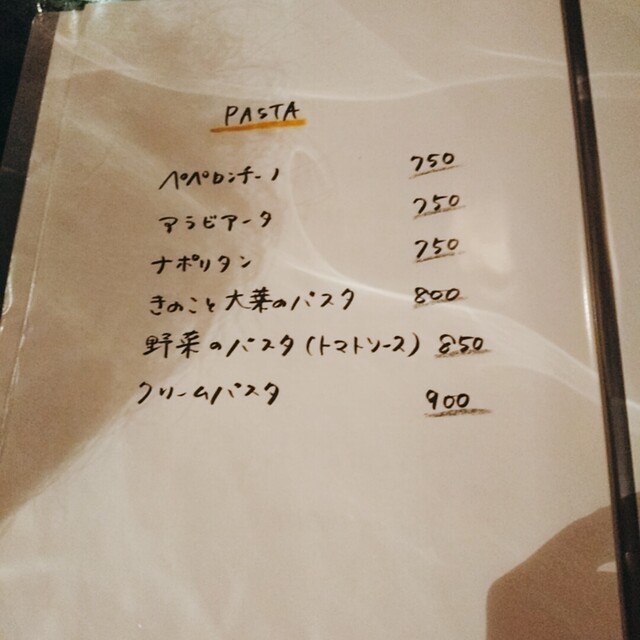 PASTA
ペペロンチーノ 750
アラビアータ 750
ナポリタン 750
きのこと大葉のパスタ 800
野菜のパスタ(トマトソース) 850
クリームパスタ 900